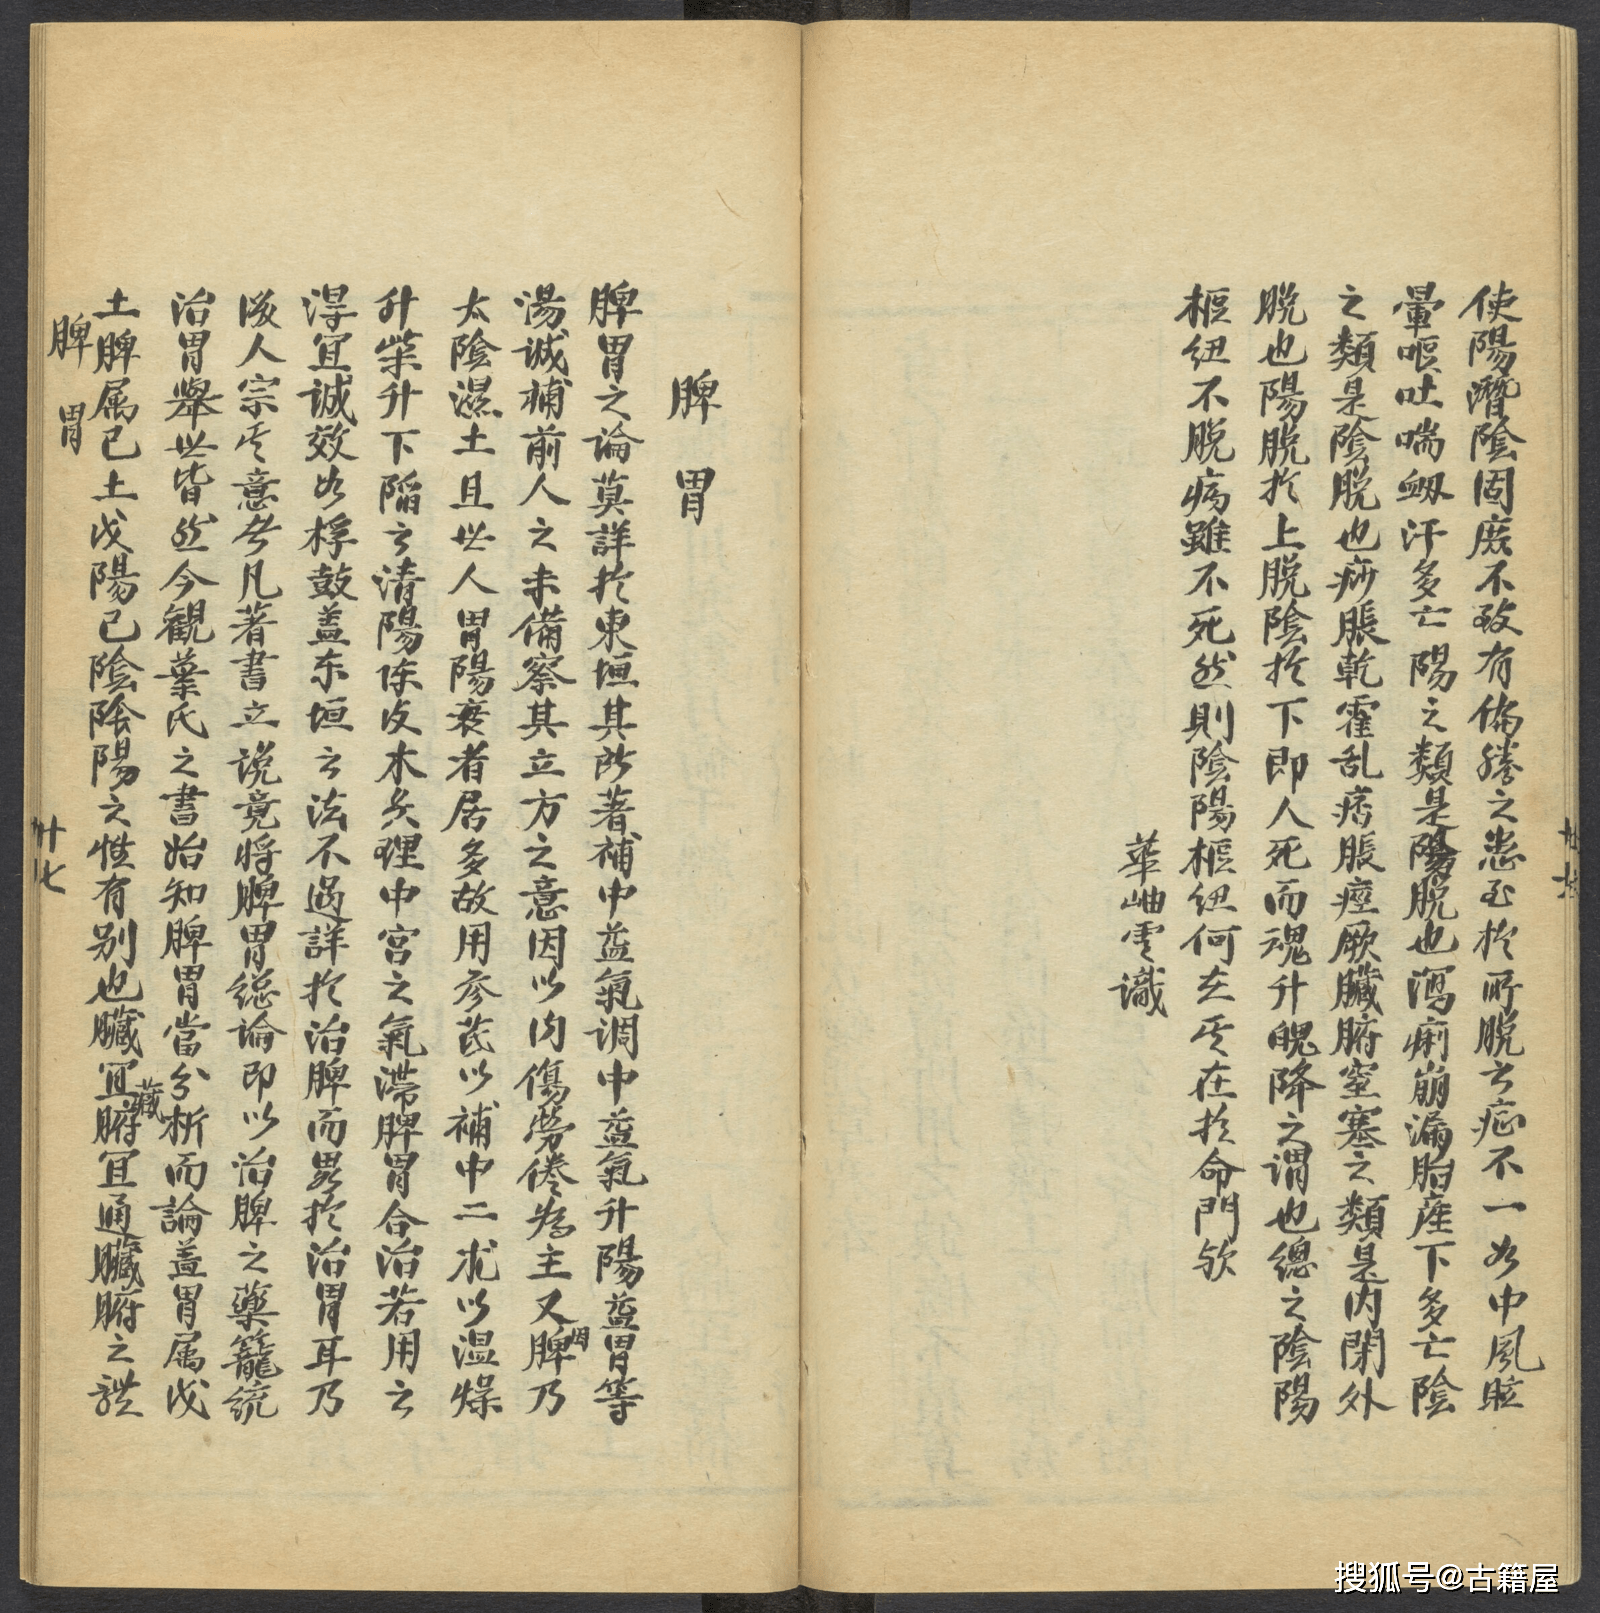 使陽潛陰固庶不致有偏勝之患至於所脫之症不一如中風眩
暈嘔吐喘衄汗多亡陽之類是陽脫也瀉痢崩漏胎產下多亡陰
之類是陰脫也痧脹乾霍乱痞脹痙厥臟腑窒塞之類是內閉外
脫也陽脫於上脫陰於下即人死而魂升魄降之謂也總之陰陽
樞紐不脫病雖不死然則陰陽樞紐何在其在於命門欤
華岫雲識
脾胃
脾胃之論莫詳於東垣其所著補中益氣調中益氣升陽益胃等
湯誠補前人之未備察其立方之意因以內傷勞倦為主又因脾乃
太陰濕土且世人胃陽衰者居多故用參芪以補中二朮以温燥
升柴升下陷之清陽陈皮木香理中宫之氣滞脾胃合治若用之
淂宜誠效如桴鼓盖东垣之法不過詳於治脾而畧於治胃耳乃
後人宗其意者凡著書立说竟将脾胃總論即以治脾之藥籠统
治胃舉世皆然今觀葉氏之書始知脾胃當分析而論盖胃属戊
土脾属己土戊陽己陰陰陽之性有别也臟宜藏腑宜通臟腑之體
脾胃
卄七
搜狐号@古籍屋